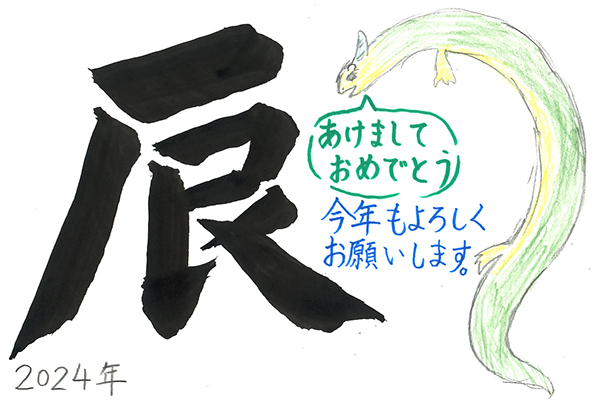 辰
あけまして
おめでとう
今年もよろしく
お願いします。
2024年